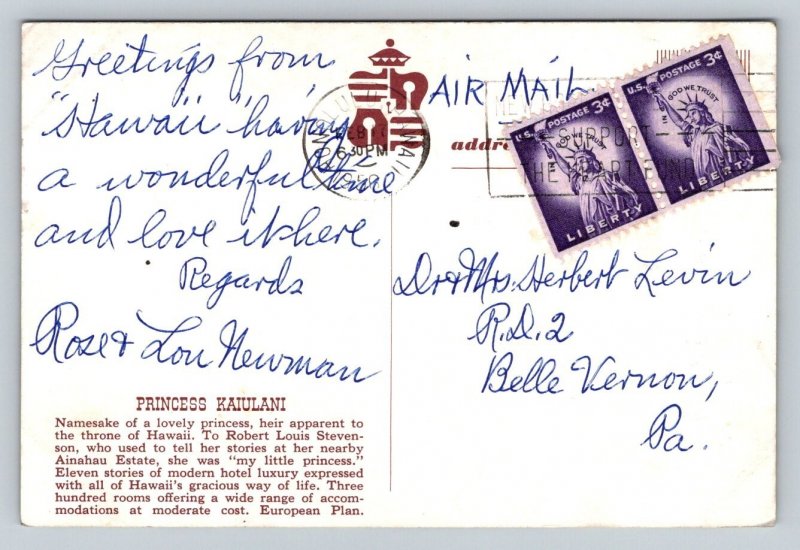 Greetings from
"Hawaii" having
a wonderful time
and love it here.
Regards
Rose & Lou Newman
PRINCESS KAIULANI
Namesake of a lovely princess, heir apparent to
the throne of Hawaii. To Robert Louis Steven-
son, who used to tell her stories at her nearby
Ainahau Estate, she was "my little princess."
Eleven stories of modern hotel luxury expressed
with all of Hawaii's gracious way of life. Three
hundred rooms offering a wide range of accom-
modations at moderate cost. European Plan.
HONOLULU HAWAII
FEB
6 30 PM
AIR MAIL
addre
SUPPORT
THE HEART FUND
U.S. POSTAGE 3¢
IN GOD WE TRUST
LIBERTY
U.S. POSTAGE 3¢
IN GOD WE TRUST
LIBERTY
Dr & Mrs. Herbert Levin
R.D. 2
Belle Vernon,
Pa.